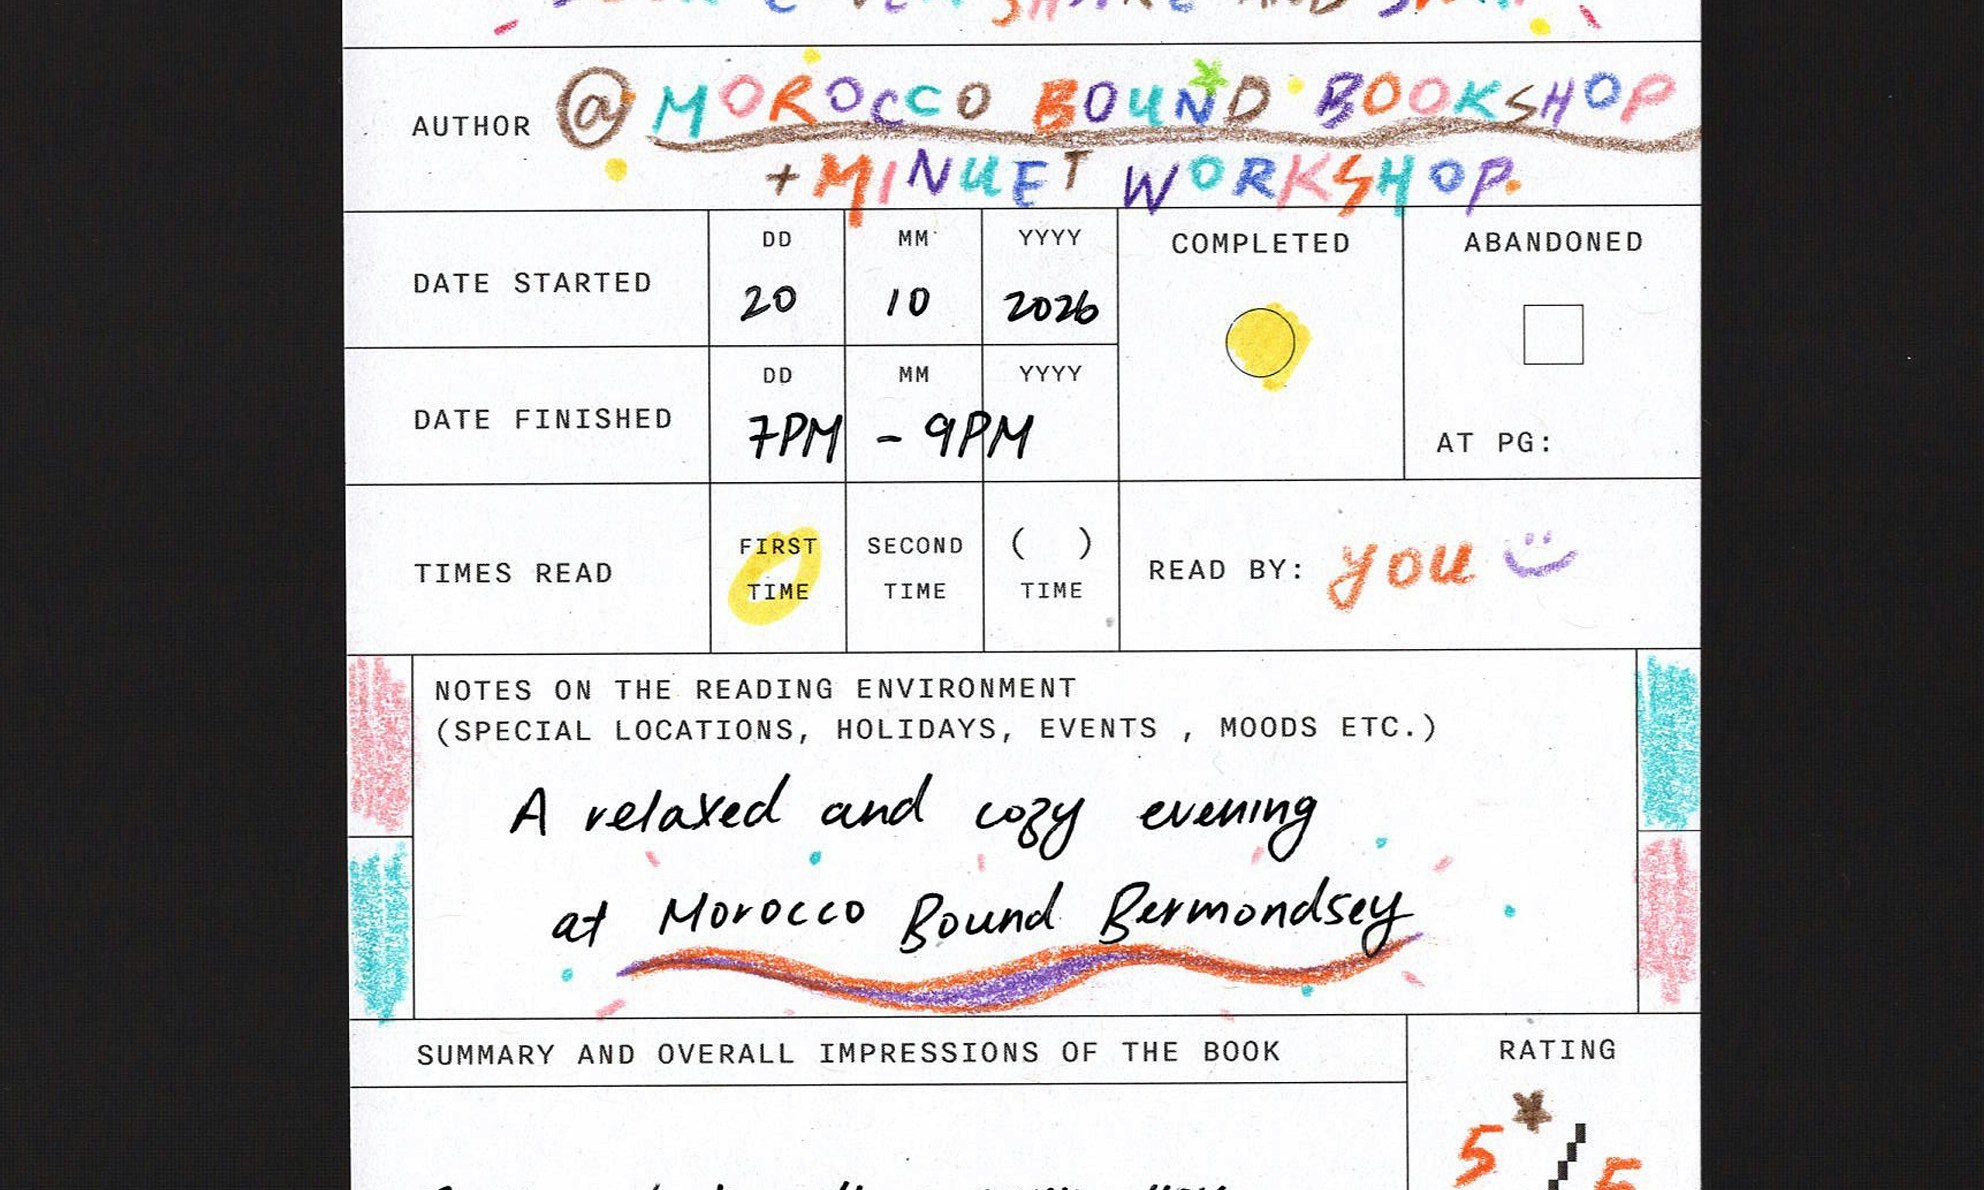 SHARE AND SWAP
AUTHOR @ MOROCCO BOUND BOOKSHOP
+ MINUET WORKSHOP.
DD MM YYYY COMPLETED ABANDONED
DATE STARTED 20 10 2026
DD MM YYYY
DATE FINISHED 7PM - 9PM
AT PG:
TIMES READ FIRST TIME SECOND TIME ( ) TIME READ BY: you
NOTES ON THE READING ENVIRONMENT
(SPECIAL LOCATIONS, HOLIDAYS, EVENTS , MOODS ETC.)
A relaxed and cozy evening
at Morocco Bound Bermondsey
SUMMARY AND OVERALL IMPRESSIONS OF THE BOOK RATING
5 / 5